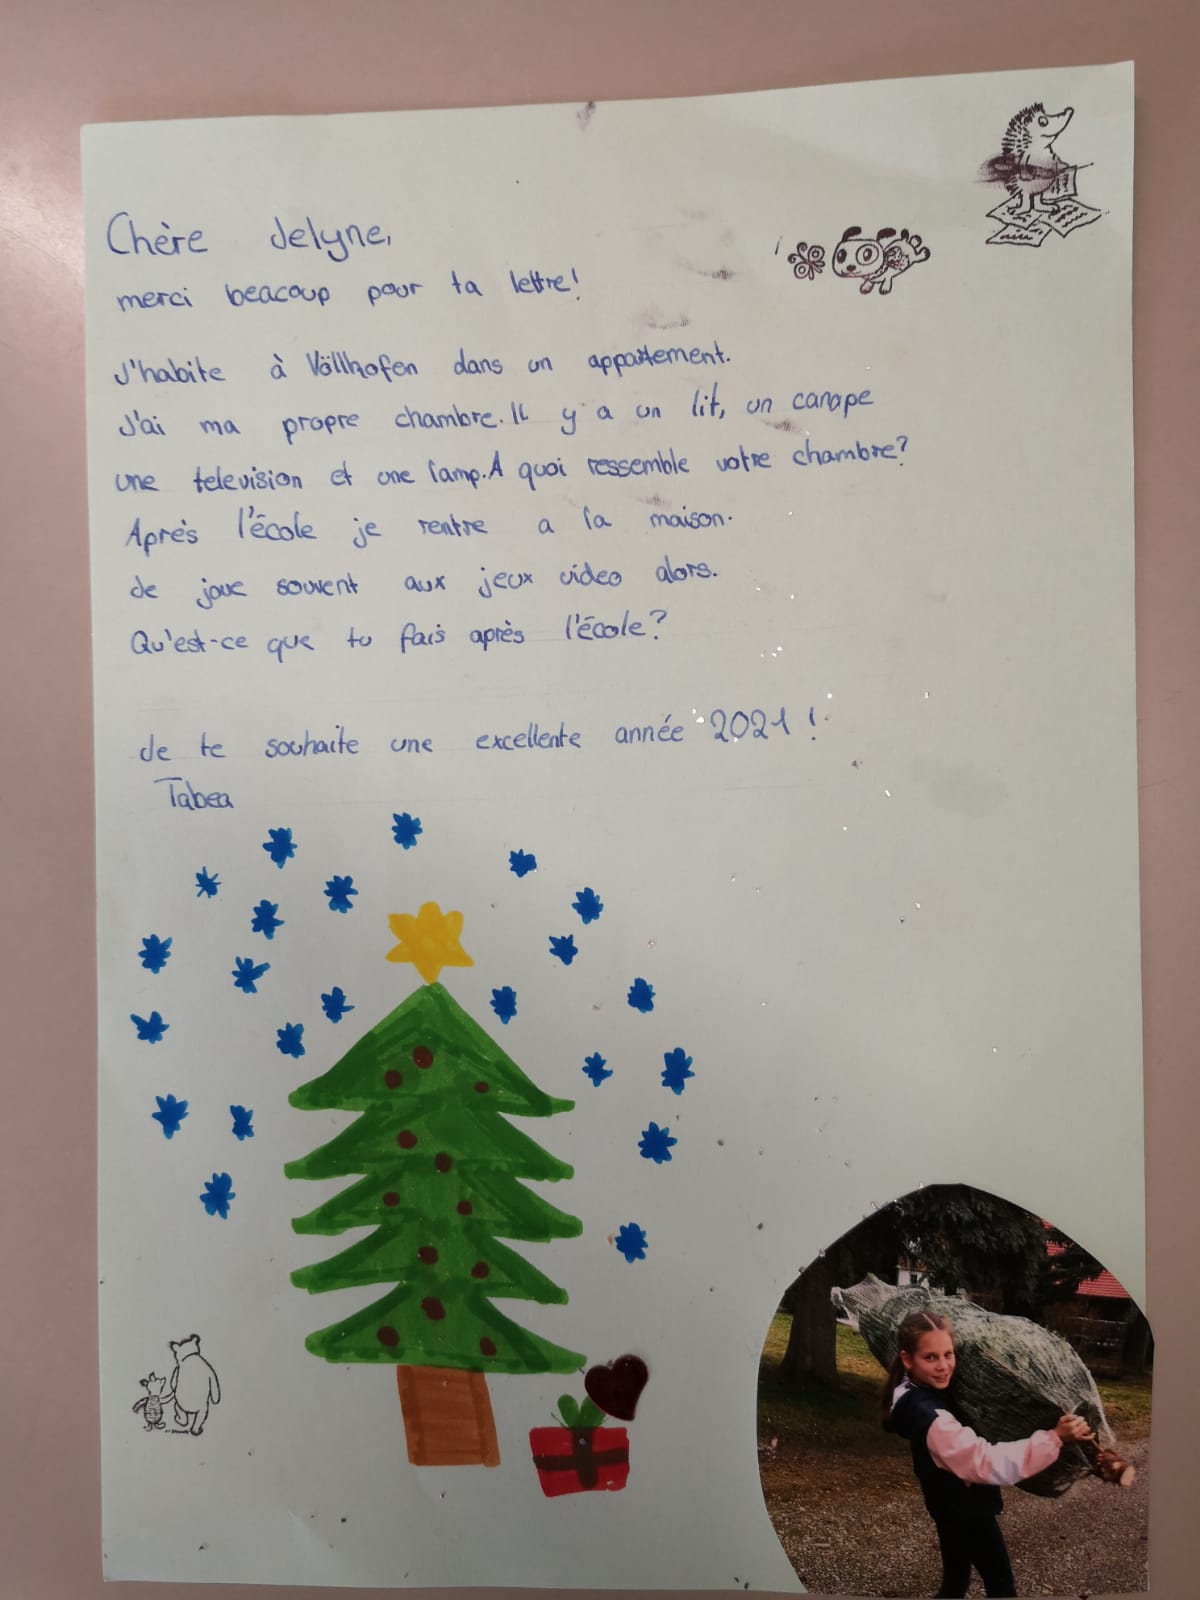 Chère Jelyne,
merci beacoup pour ta lettre!
J'habite à Völlhofen dans un appartement.
J'ai ma propre chambre. Il y a un lit, un canape
une television et une lamp. A quoi ressemble votre chambre?
Après l'école je rentre a la maison.
Je joue souvent aux jeux video alors.
Qu'est-ce que tu fais après l'école?
Je te souhaite une excellente année 2021!
Tabea